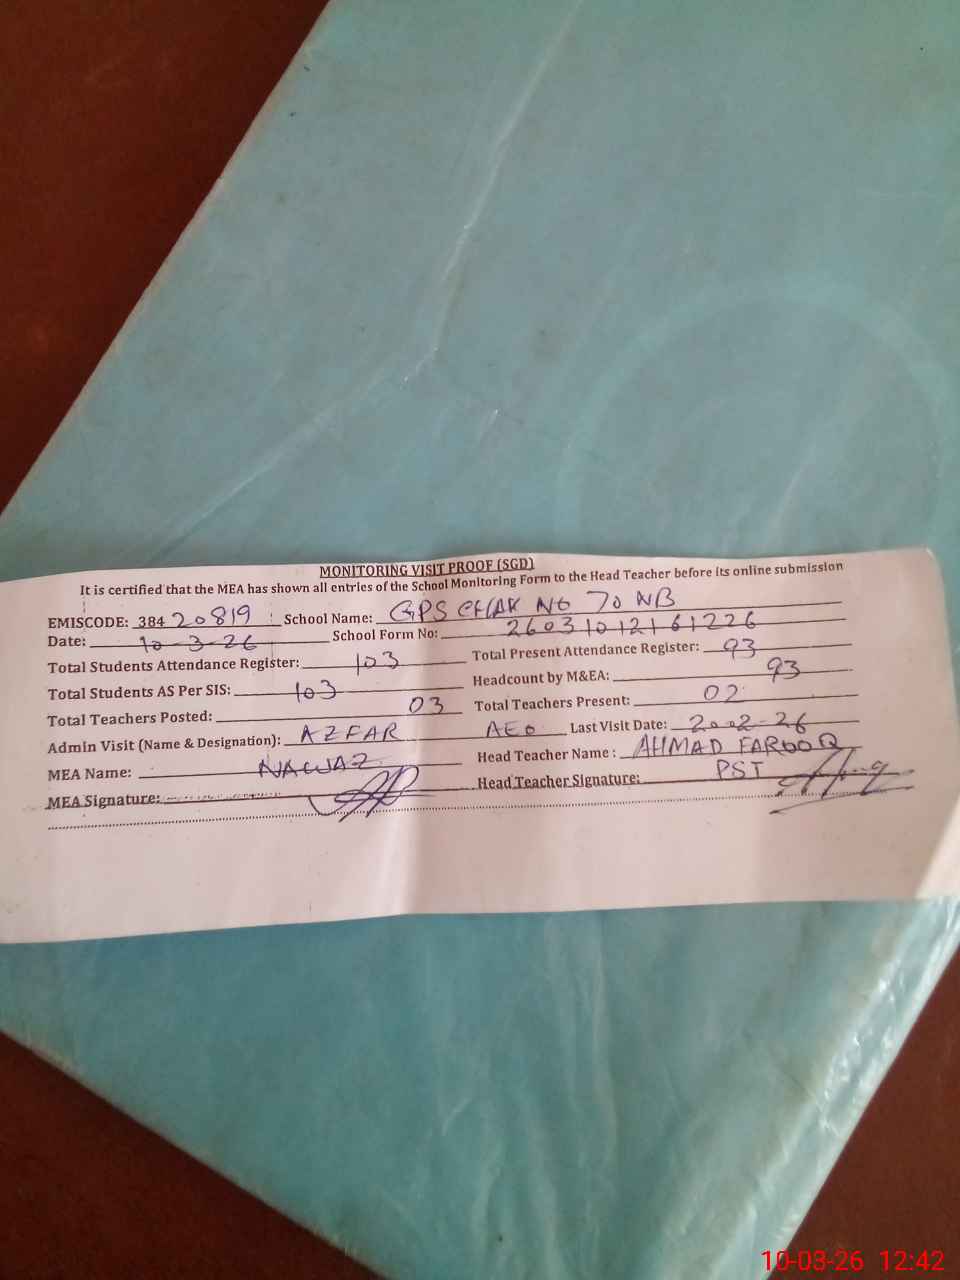 MONITORING VISIT PROOF (SGD)
It is certified that the MEA has shown all entries of the School Monitoring Form to the Head Teacher before its online submission
EMISCODE: 384 20819 School Name: GPS CHAK NO 70 NB
Date: 10-3-26 School Form No: 2603101216 1226
Total Students Attendance Register: 103 Total Present Attendance Register: 93
Total Students AS Per SIS: 103 Headcount by M&EA: 93
Total Teachers Posted: 03 Total Teachers Present: 02
Admin Visit (Name & Designation): AZFAR AEO Last Visit Date: 20-02-26
MEA Name: NAWAZ Head Teacher Name : AHMAD FAROOQ
MEA Signature: Head Teacher Signature: PST
10-03-26 12:42